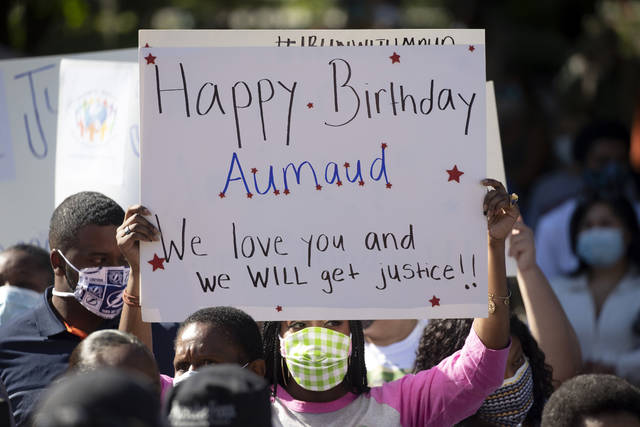 #IRUNWITHMAUD
Happy Birthday
Aumaud
We love you and
we WILL get justice!!
Ju